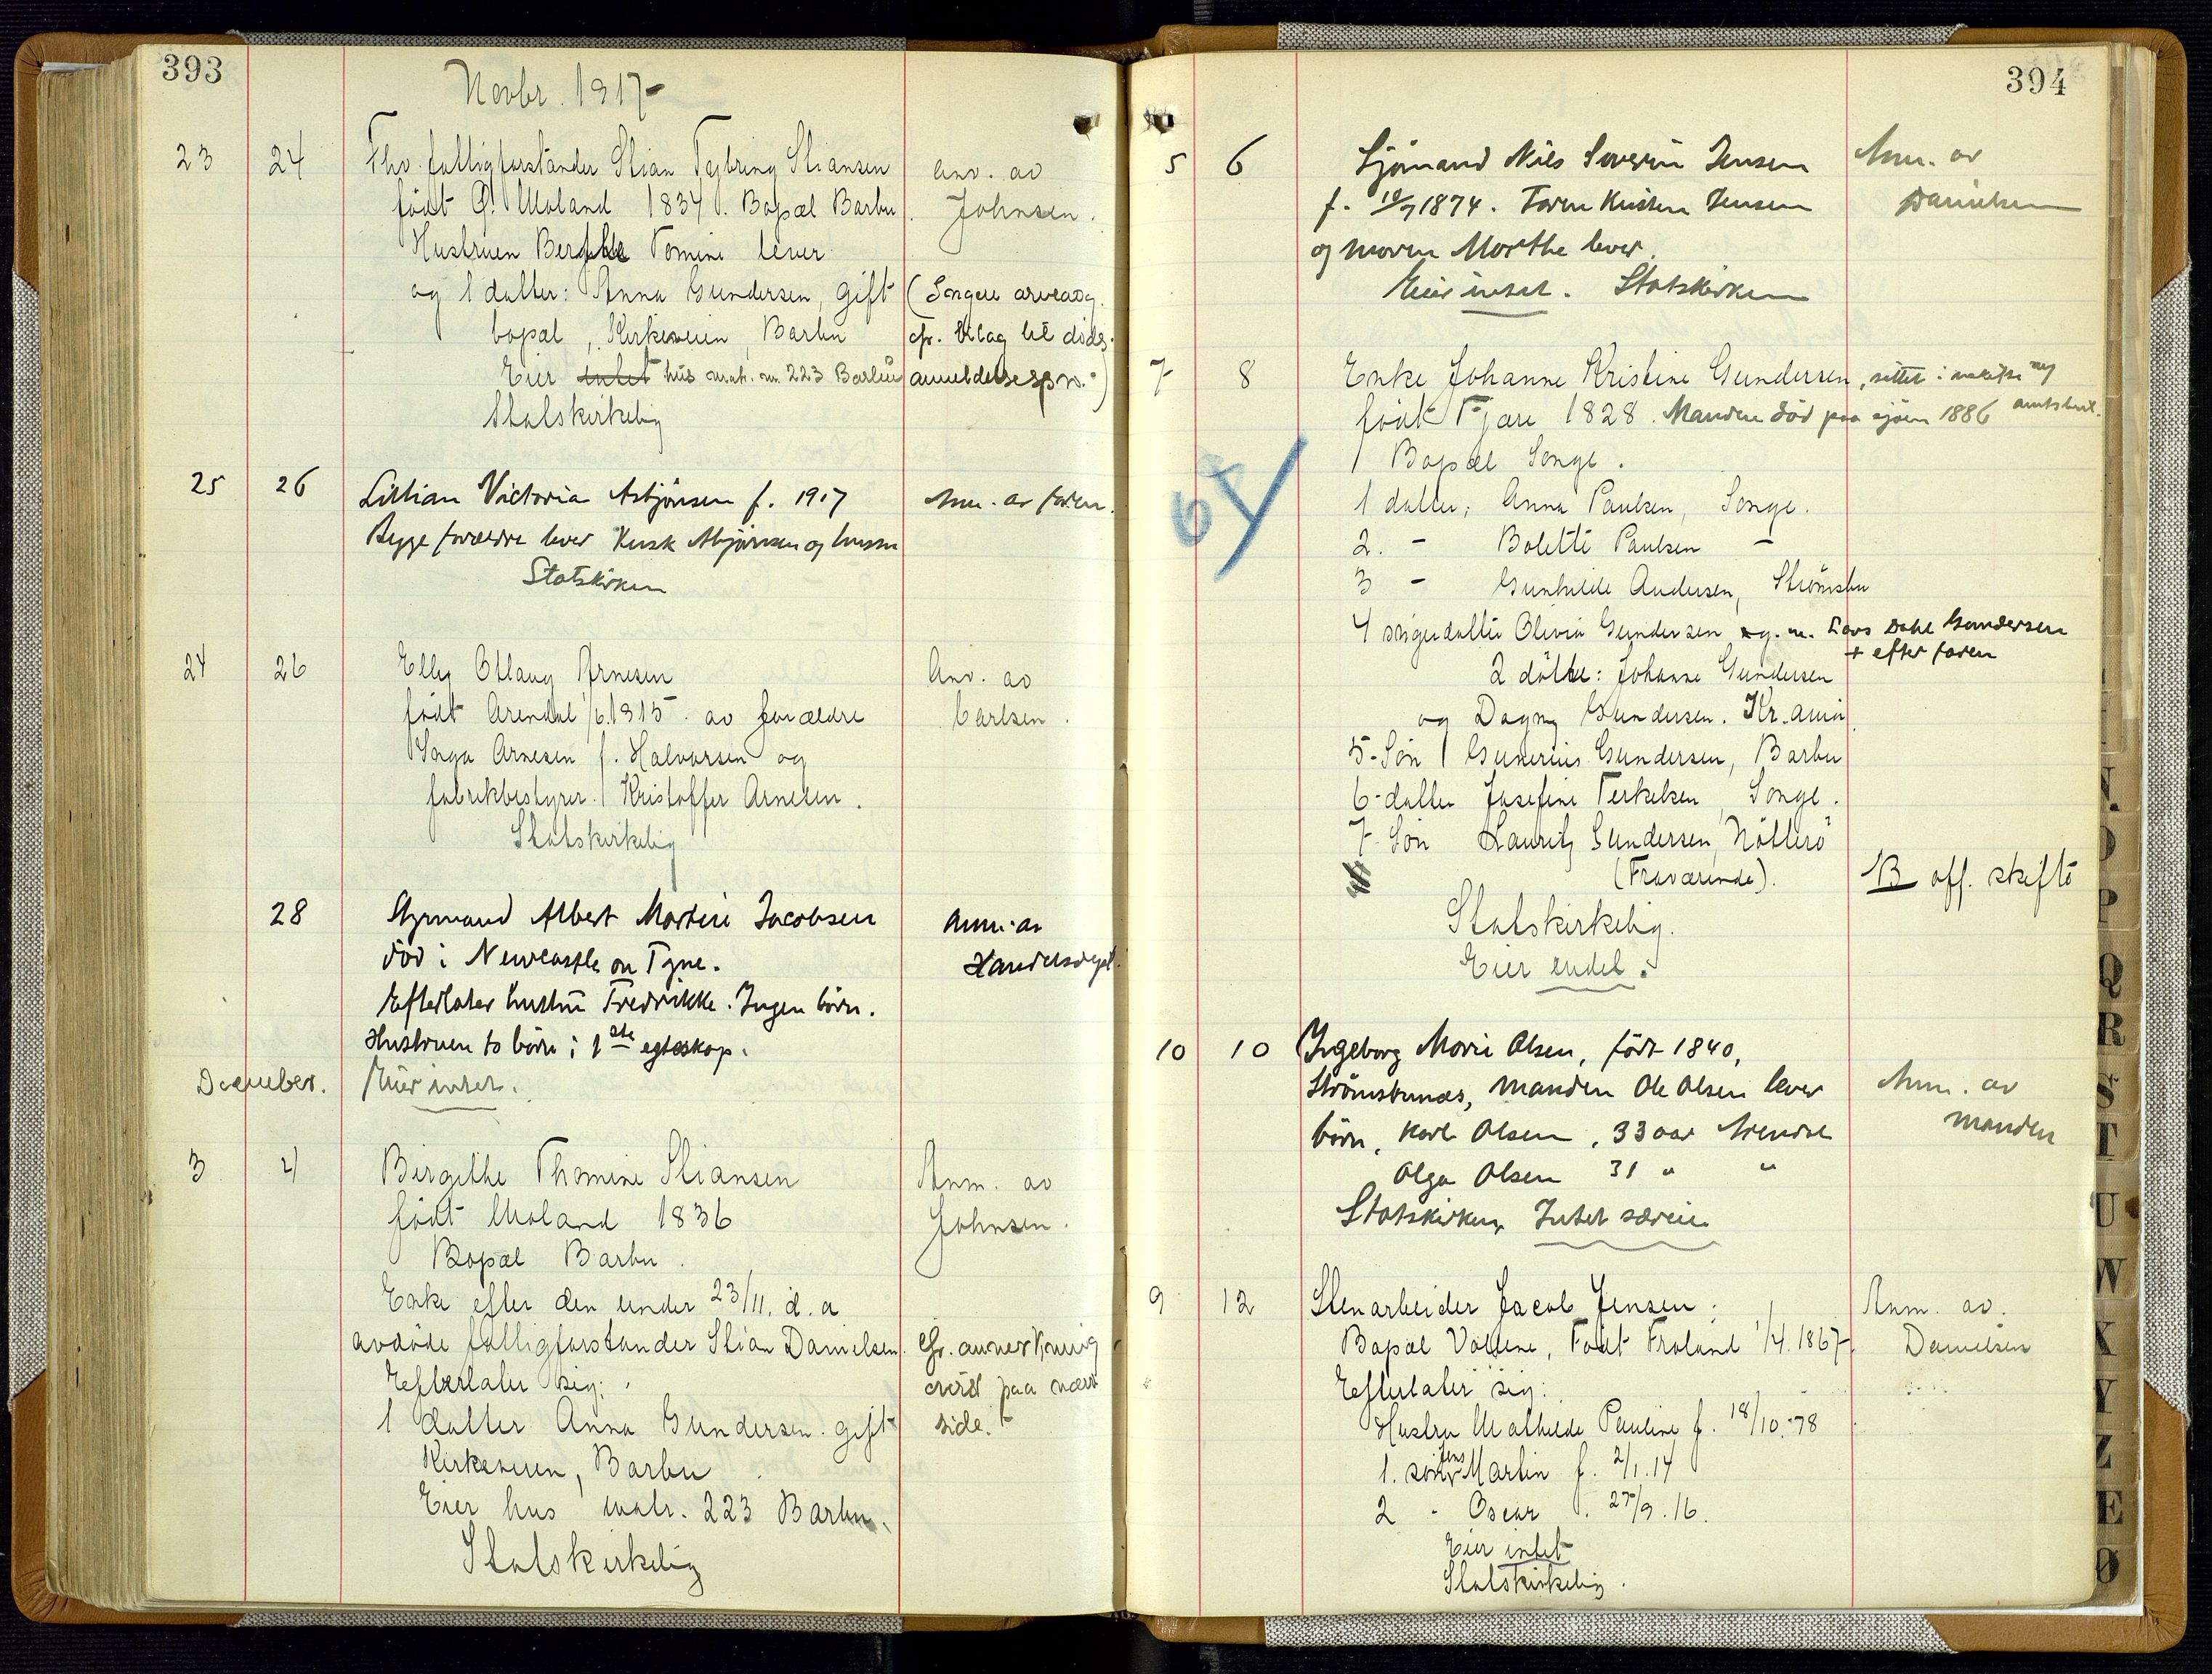 393
Novbr. 1917-
23 24 Fhv. fattigforstander Stian Stiansen anv. av
født Ø. Moland 1834. Bopæl Barbu. Johnsen.
Hustruen Tomine lever
og 1 datter: Anna Gundersen, gift (Ingen
bopæl, Kirkeveien, Barbu cfr. til døds-
Eier intet hus mat. nr. 223 Barbu anmeldelsesp
Statskirkelig
25 26 Lillian Victoria Asbjönsen f. 1917 Anm. av faren.
Begge forældre lever Kusk Asbjörnsen og hustru
Statskirken
24 26 Elly Otlaug Arnesen Anv. av
født Arendal 1/6.1915. av forældre Carlsen.
Arnesen f. Halvorsen og
fabrikbestyrer Kristoffer Arnesen.
Statskirkelig
28 Styrmand Albert Jacobsen Anm. av
död i Newcastle on Tyne. Handelsdept.
Efterlater hustru Fredrikke. Ingen börn.
Hustruen to börn i 1ste egteskap.
December. Eier intet.
3 4 Birgithe Thomine Stiansen Anm. av
født Moland 1836 Johnsen.
Bopæl Barbu.
Enke efter den under 23/11. d. a
avdøde fattigforstander Stian Danielsen. Cfr. anmerkning
Efterlater sig: øverst paa næst
1 datter Anna Gundersen. gift side.
Kirkeveien, Barbu
Eier hus matr. 223 Barbu.
Statskirkelig
394
5 6 Sjömand Nils Severin Jensen Anm. av
f. 10/7 1874. Faren Kristen Jensen Danielsen
og moren Marthe lever.
Eier intet. Statskirken
7 8 Enke Johanne Kristine Gundersen, sitter i
født Fjære 1828. Manden död paa sjöen 1886
Bopæl Songe.
1 datter, Anna Paulsen, Songe.
2. - Bolette Paulsen -
3 - Gunhilde Andersen, Strömsbu
4 Olivia Gundersen g. m. Lars Dahl Gundersen
+ efter faren
2 døtre: Johanne Gundersen
og Dagny Gundersen. Kr.ania
5-Søn Gunerius Gundersen, Barbu
6-datter Josefine Terkelsen, Songe.
7-Søn Lauritz Gundersen, Nøtterø
(Fraværende). B off. skifte
Statskirkelig.
Eier endel.
10 10 Ingeborg Marie Olsen, født 1840,
Strömsbunes, manden Ole Olsen lever Anm. av
börn, Karl Olsen, 33 aar Arendal manden
Olga Olsen 31 " "
Statskirken Intet særeie
9 12 Stenarbeider Jacob Jensen. Anm. av.
Bopæl Vollene, Født Froland 1/4.1867. Danielsen
Efterlater sig:
Hustru Mathilde Pauline f. 18/10.-78
1. søn Jens Martin f. 2/1.14
2 - Oscar . 27/9.16.
Eier intet
Statskirkelig.
N.
O
P
Q
R
S
T
U
W
X
Y
Z
Æ
Ø